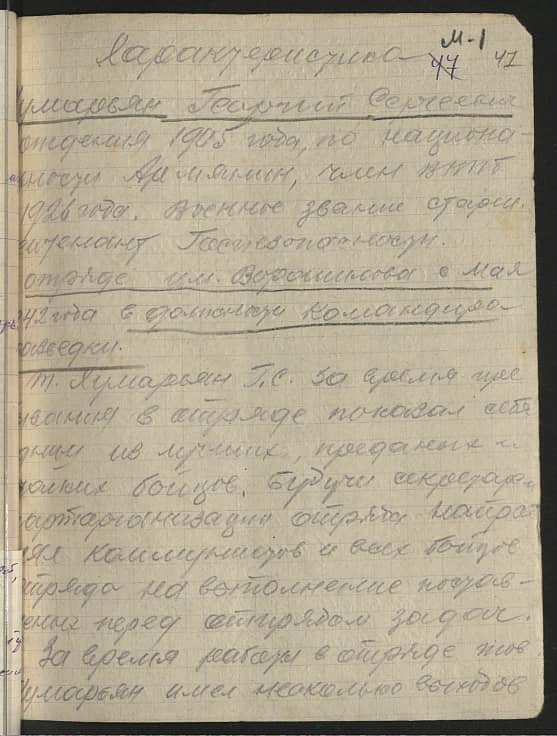 М-1
Характеристика 47 41
умарьян Георгий Сергеевич
ождения 1905 года, по национа-
ности Армянин, член ВКПб
1926 года. Военное звание старш.
ейтенант Госбезопасности.
отряде им. Ворошилова с мая
942 года в должности Командира
разведки.
т. Хумарьян Г.С. за время пре
вания в отряде показал себя
дним из лучших, преданых и
ойких бойцов. Будучи секретарем
парторганизации отряда направ
ял коммунистов и всех бойцов
тряда на выполнение постав-
еных перед отрядом задач.
За время работы в отряде тов
Хумарьян имел несколько выходов